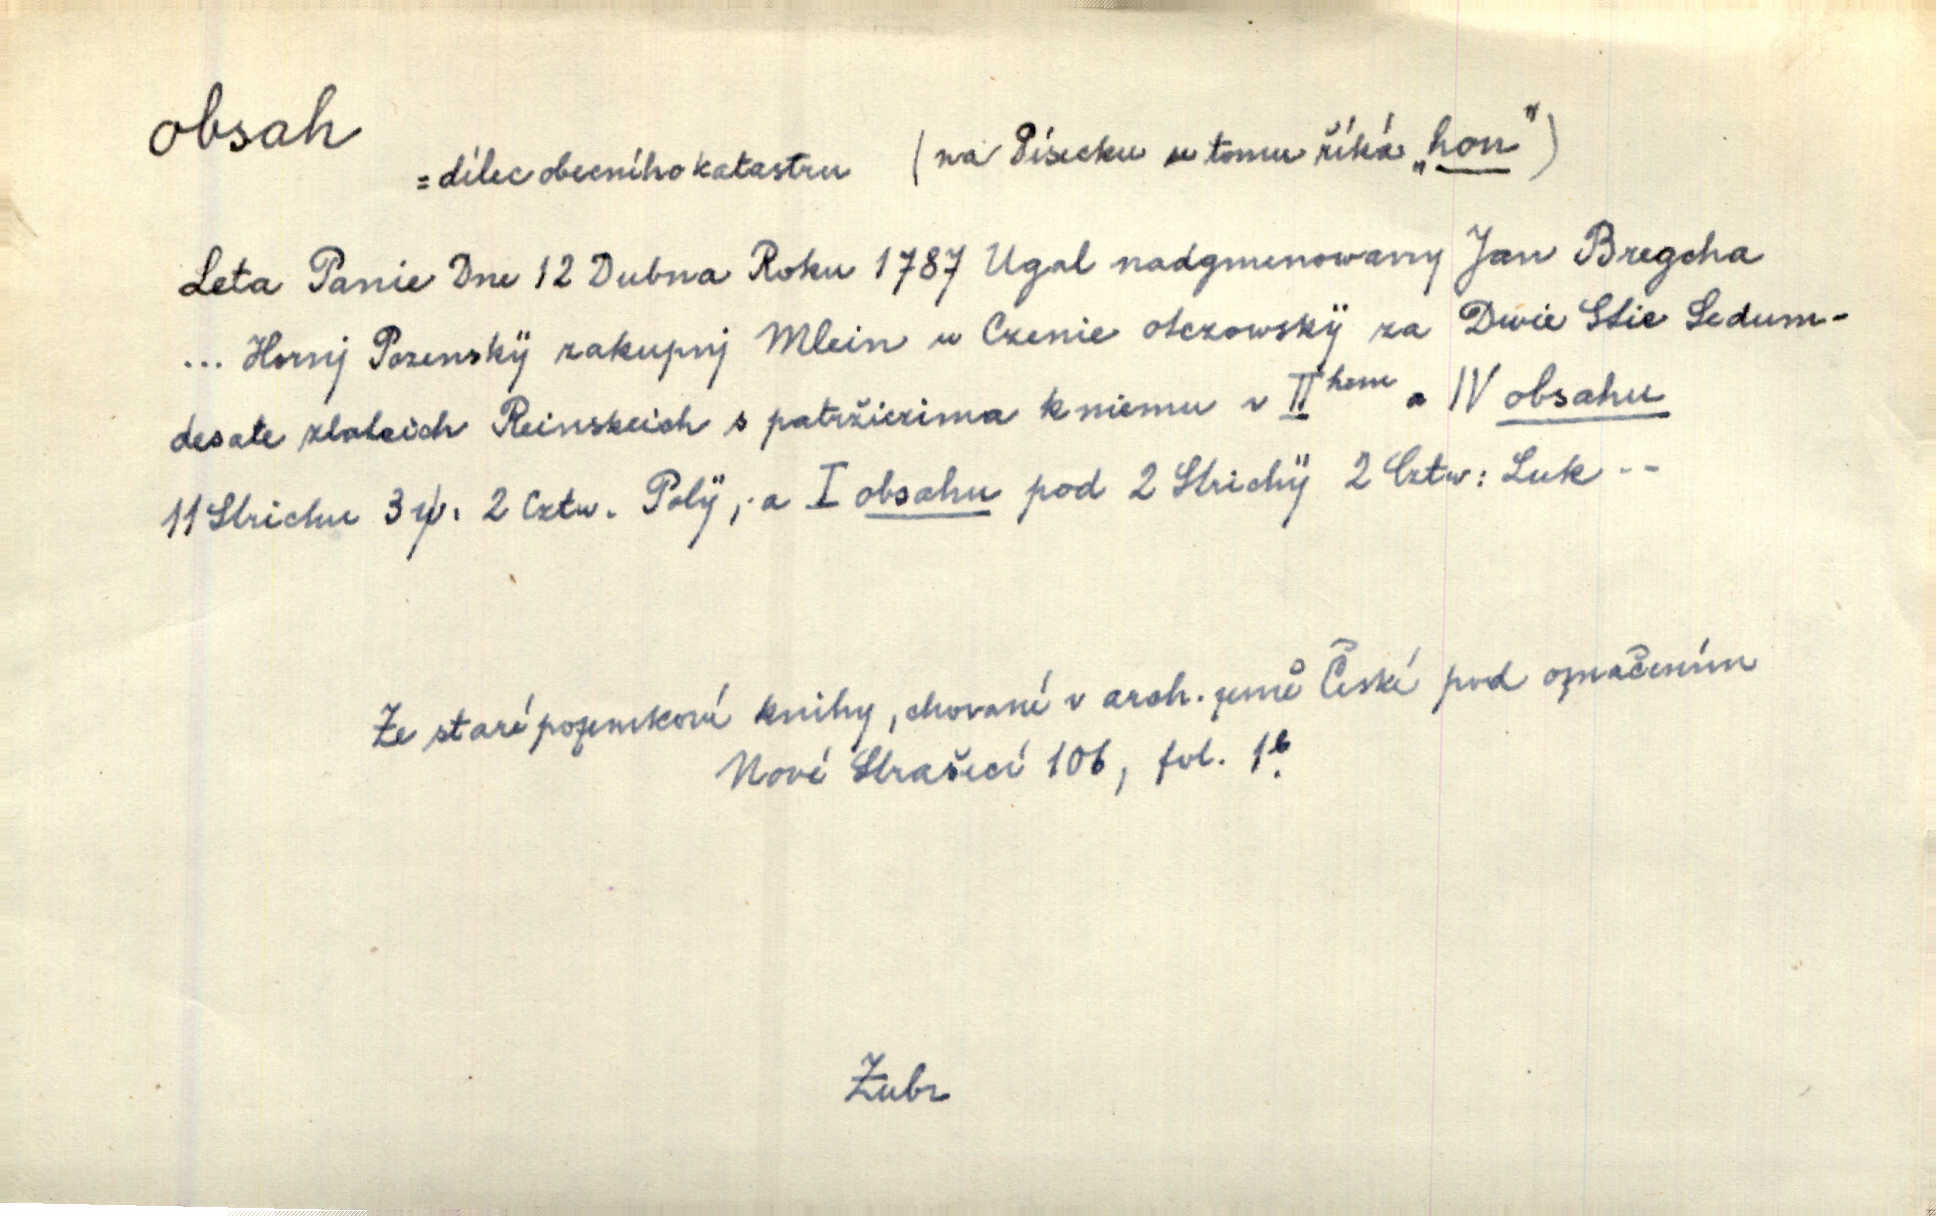 obsah
= dílec obecního katastru (na Písecku se tomu říká „hon")
Leta Panie Dne 12 Dubna Roku 1787 Ugal nadgmenowany Jan Bregcha
... Hornj Pozenskÿ zakupnj Mlein w Czenie otczowskÿ za Dwie Stie Sedum-
desate zlateich Reinskeich s patržiczima k niemu v II hem a IV obsahu
11 Strichu 3 2 Cztw. Polÿ, a I obsahu pod 2 Strichÿ 2 Cztw: Luk --
Ze staré pozemkové knihy, chované v arch. země České pod označením
Nové Strašecí 106, fol. 1b.
Zubr